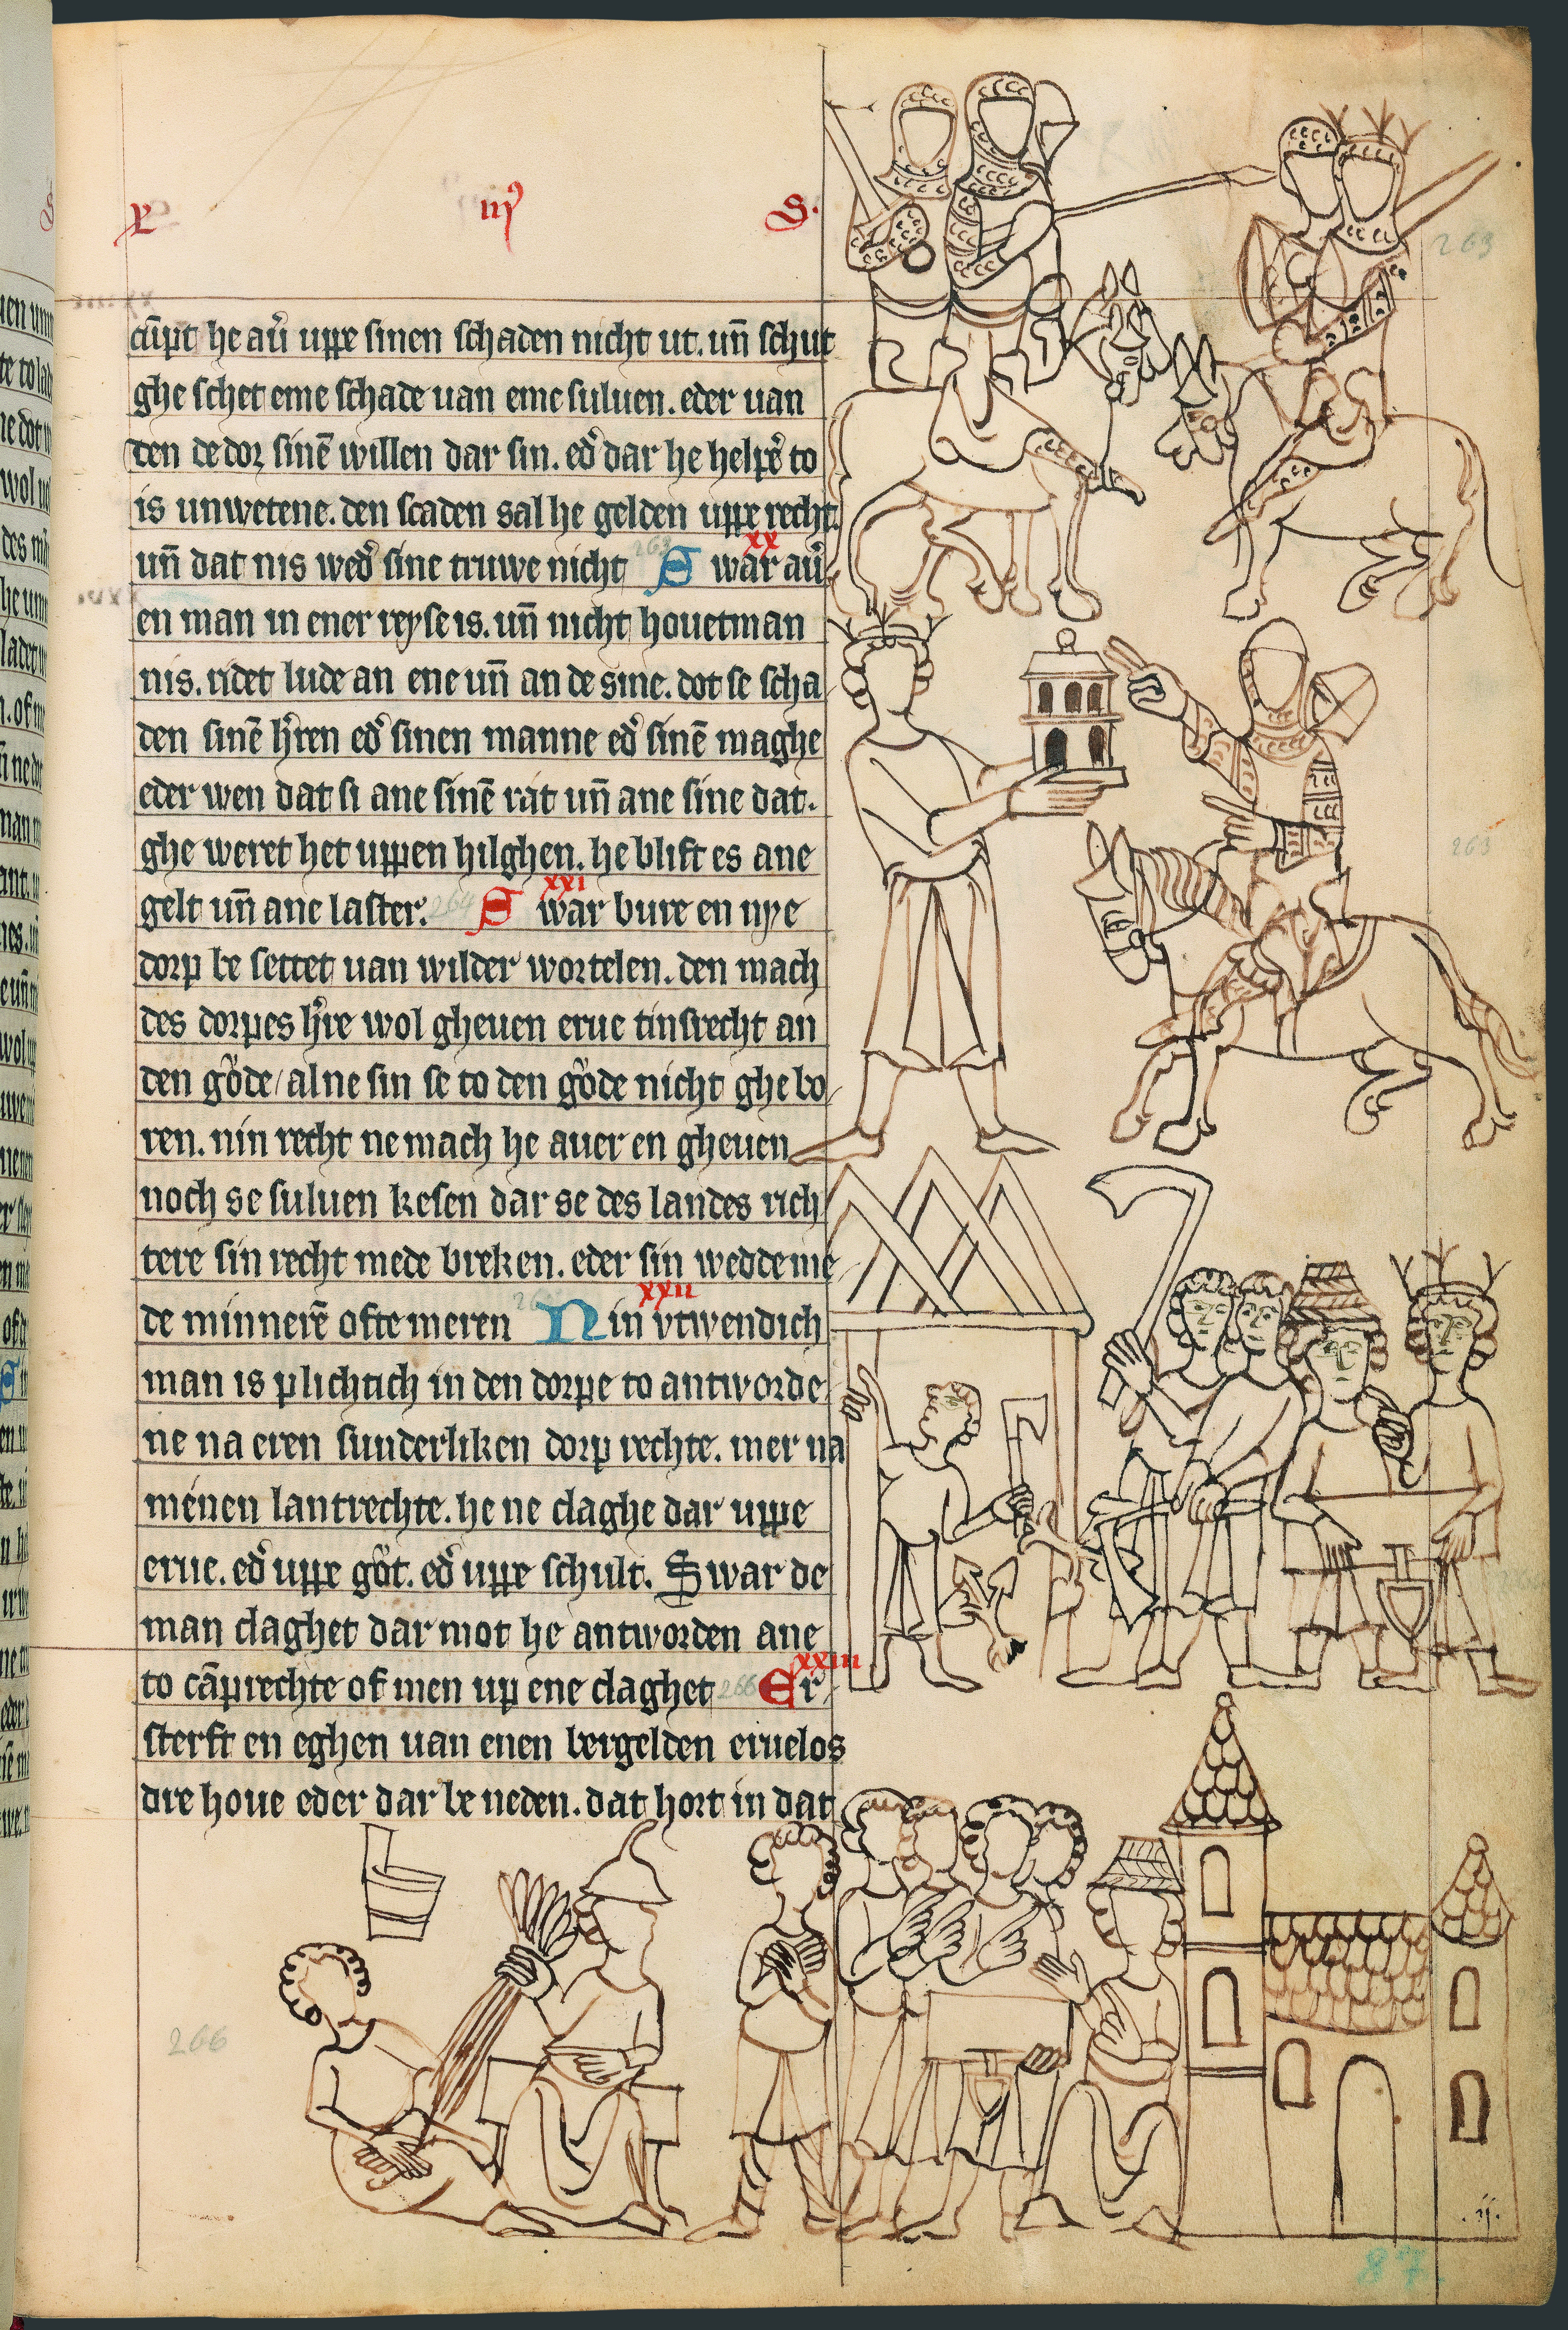 iij
S.
cūpt he au̓ uppe sinen schaden nicht ut. un̄ schut
ghe schet eme schade uan eme suluen. eder uan
den de dor sinē willen dar sin. ed̓ dar he helpe̓ to
is unwetene. den scaden sal he gelden uppe recht.
un̄ dat nis wed̓ sine truwe nicht 263 S war au̓
xx
en man in ener reyse is. un̄ nicht houetman
nis. ridet lude an ene un̄ an de sine. dot se scha
den sinē h̓ren ed̓ sinen manne ed̓ sinē maghe
eder wen dat si ane sinē rat un̄ ane sine dat.
ghe weret het uppen hilghen. he blift es ane
gelt un̄ ane laster. 264 S war bure en nye
xxi
dorp be settet uan wilder wortelen. den mach
des dorpes h̓re wol gheuen erue tinsrecht an
den gode/ alne sin se to den gode nicht ghe bo
ren. nin recht ne mach he auer en gheuen
noch se suluen kesen dar se des landes rich
tere sin recht mede breken. eder sin wedde me
de minnerē ofte meren Nin vtwendich
xxii
man is plichtich in den dorpe to antworde
ne na eren sunderliken dorp rechte. mer na
menen lantrechte. he ne claghe dar uppe
erue. ed̓ uppe got. ed̓ uppe schult. Swar de
man claghet dar mot he antworden ane
to cāprechte of men up ene claghet 266 Er
xxiii
sterft en eghen uan enen bergelden eruelos
dre houe eder dar be neden. dat hort in dat
263
263
266
.ij.
87.